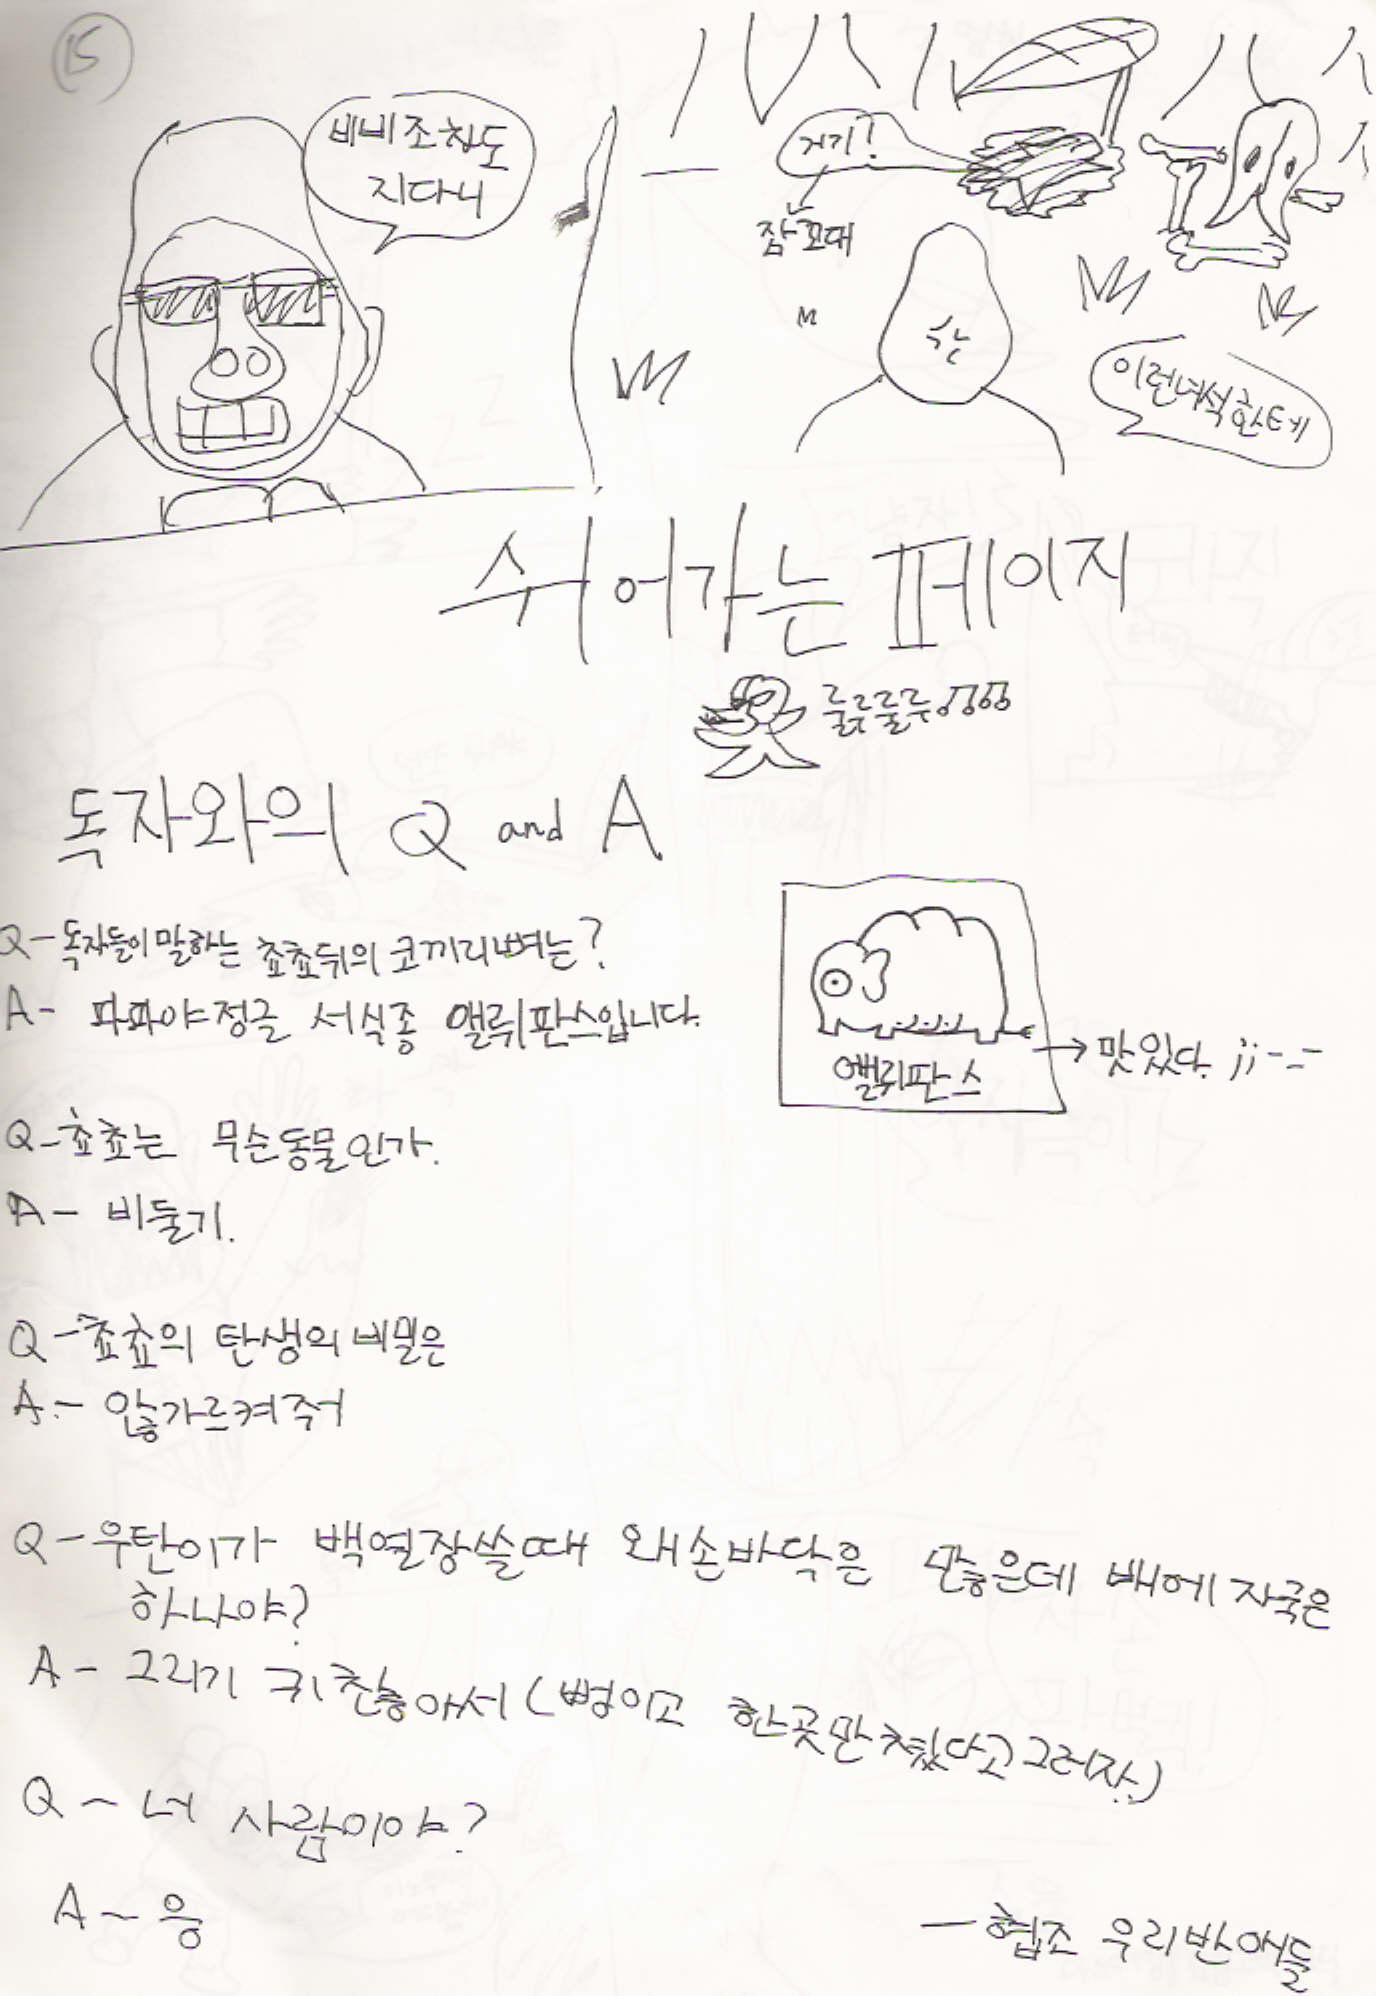 15
비비조차도
지다니
거기!
잠꼬대
이런녀석한테
쉬어가는 페이지
룰루룰루
독자와의 Q and A
Q - 독자들이 말하는 쵸쵸뒤의 코끼리뼈는?
A - 파파야정글 서식종 앨뤼판스입니다.
앨뤼판스
→ 맛있다. ;; -_-
Q - 쵸쵸는 무슨동물인가.
A - 비둘기.
Q - 쵸쵸의 탄생의 비밀은
A - 않가르켜줘
Q - 우탄이가 백열장쓸때 왜손바닥은 많은데 배에 자국은
하나야?
A - 그리기 귀찮아서 (뻥이고 한곳만 쳤다고그러자.)
Q - 너 사람이야?
A - 응
- 협조 우리반애들